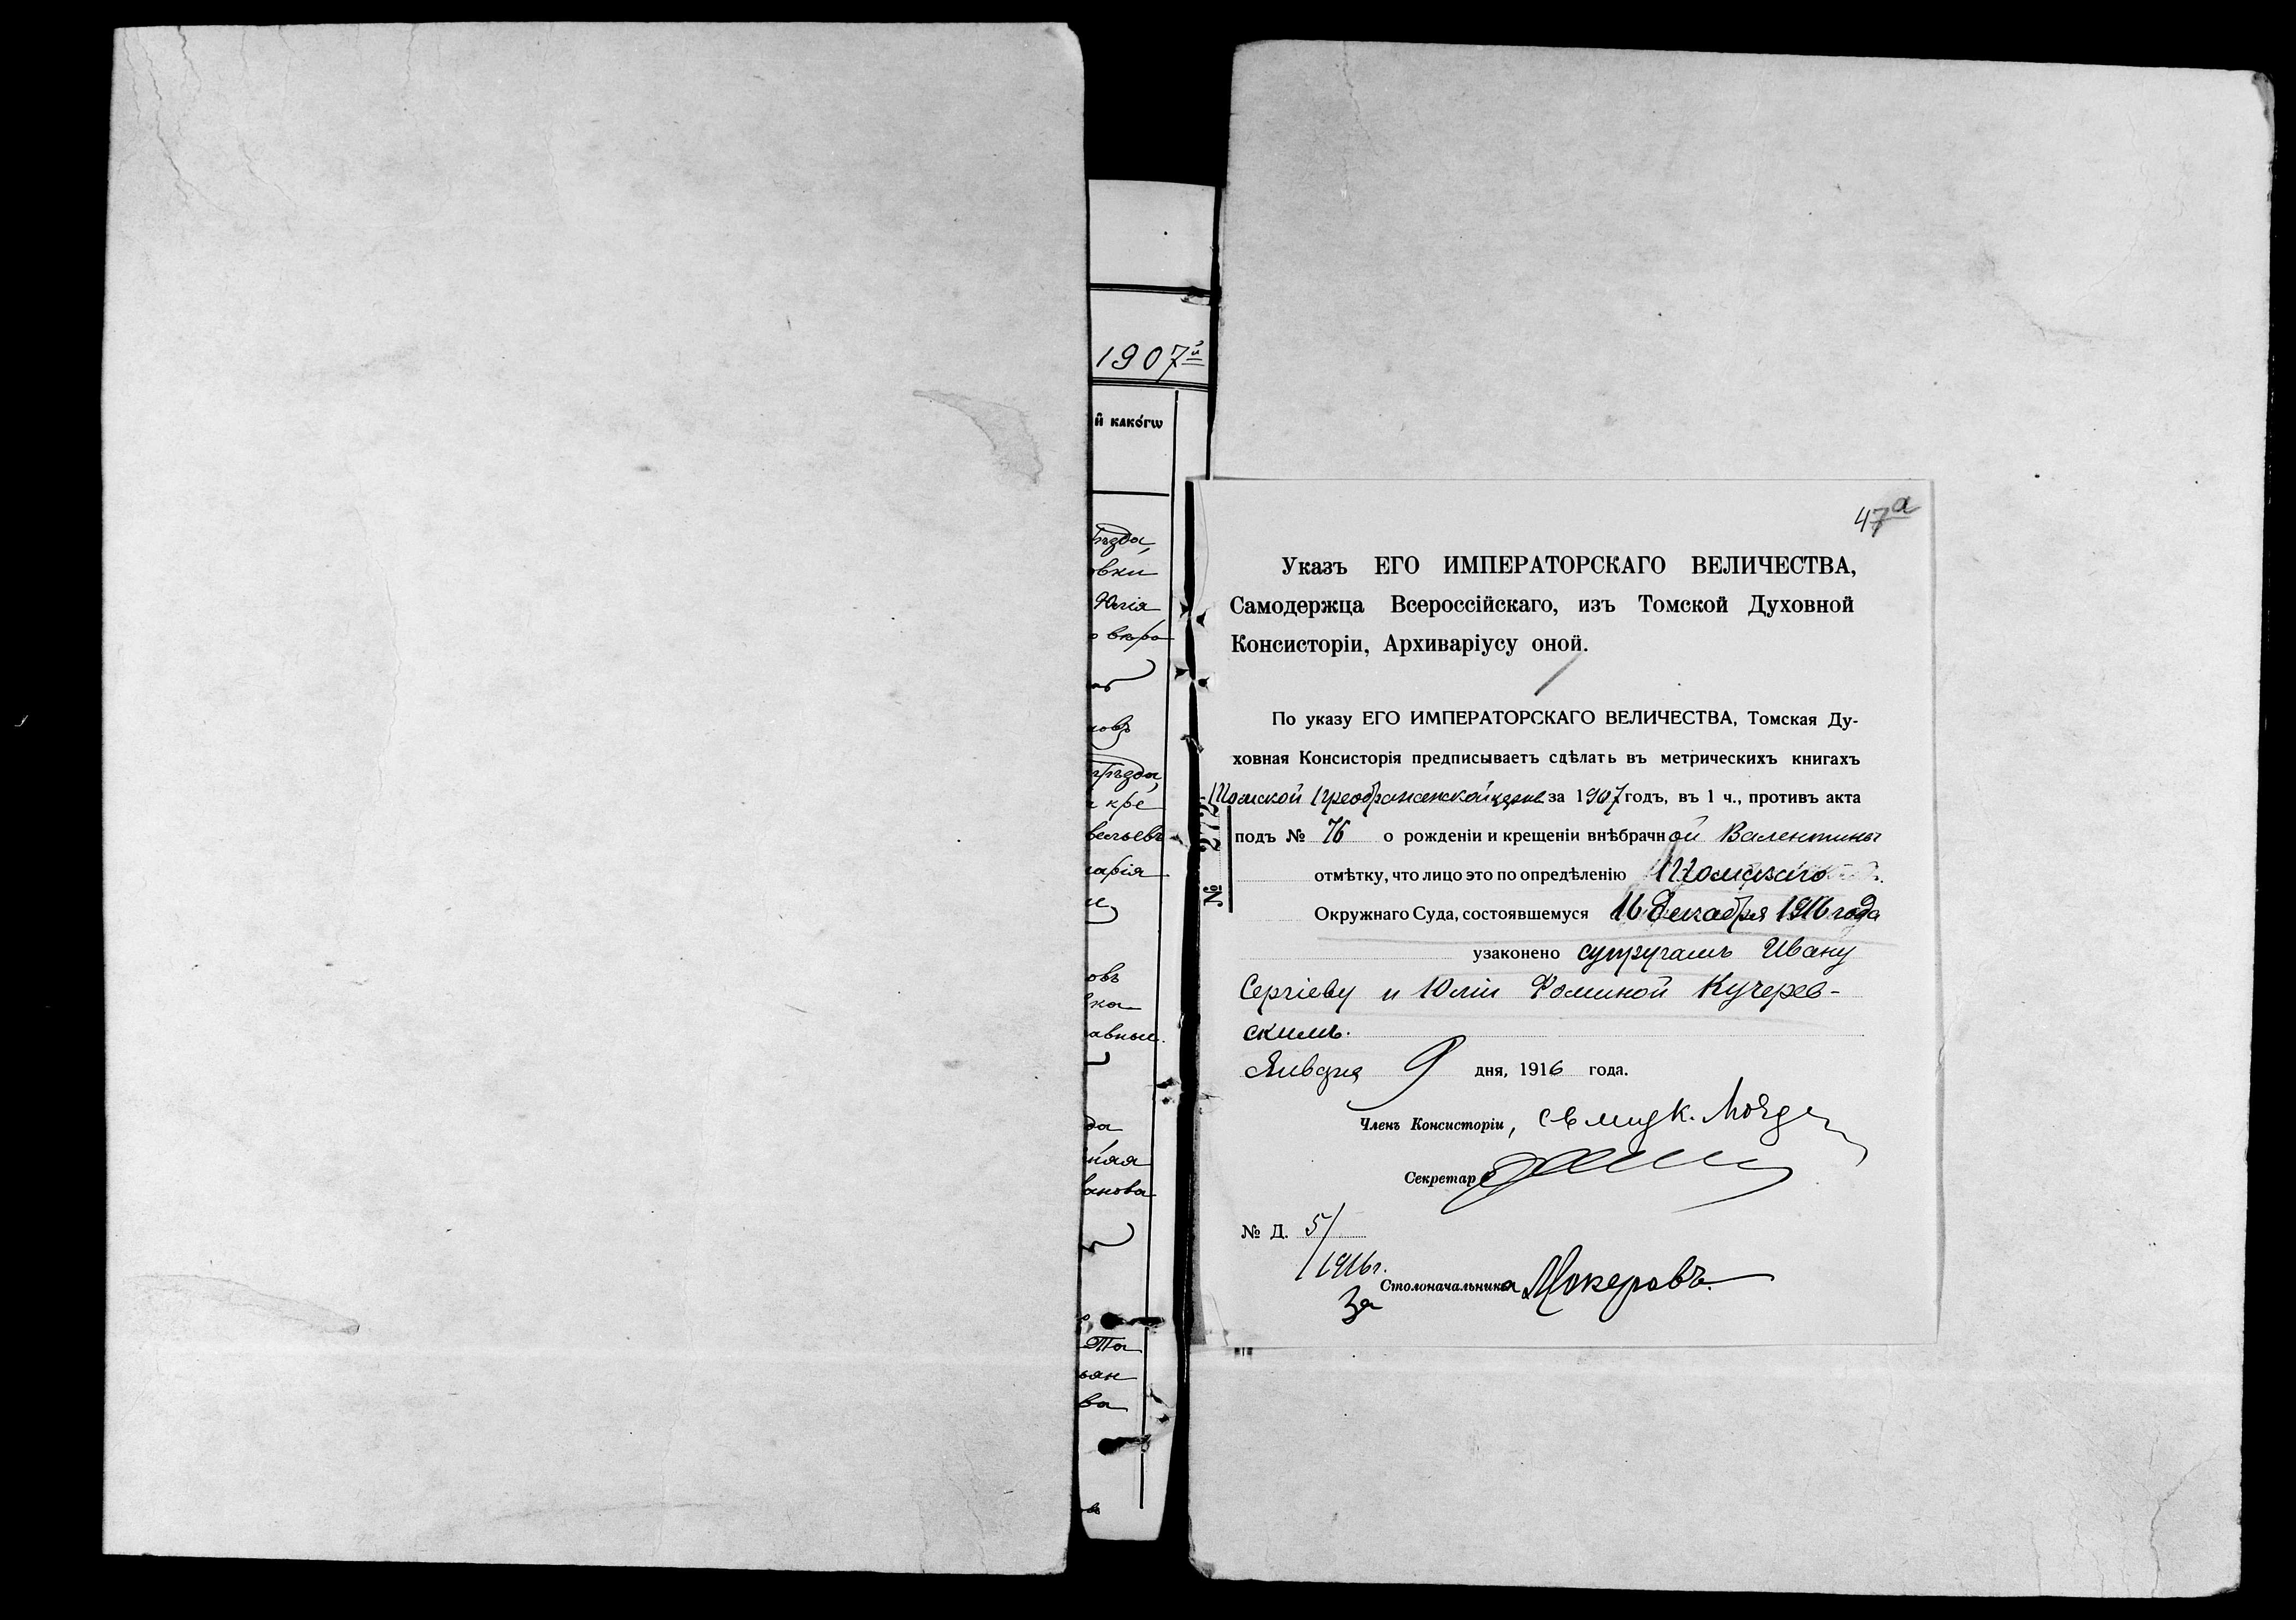 1907й
и̂ како́гѡ
ѣзда,
овки
Юлія
новъ
уѣзда,
вельевъ
марія
овъ
авные.
да
ная
ванова
Та
ва
47а
Указъ ЕГО ИМПЕРАТОРСКАГО ВЕЛИЧЕСТВА,
Самодержца Всероссійскаго, изъ Томской Духовной
Консисторіи, Архиваріусу оной.
По указу ЕГО ИМПЕРАТОРСКАГО ВЕЛИЧЕСТВА, Томская Ду-
ховная Консисторія предписываетъ сдѣлать въ метрическихъ книгахъ
Томской Преображенской церкв. за 1907 годъ, въ 1 ч., противъ акта
подъ № 76 о рожденіи и крещеніи внѣбрачной Валентины
отмѣтку, что лицо это по опредѣленію Томскаго
Окружнаго Суда, состоявшемуся 16 Декабря 1916 года
узаконено супругамъ Ивану
Сергіеву и Юліи Фоминой Кучерев-
скимъ.
Января 9 дня, 1916 года.
Членъ Консисторіи,
Секретарь
№ Д. 5/
1916 г.
За Столоначальника Мокеровъ.
№ 272